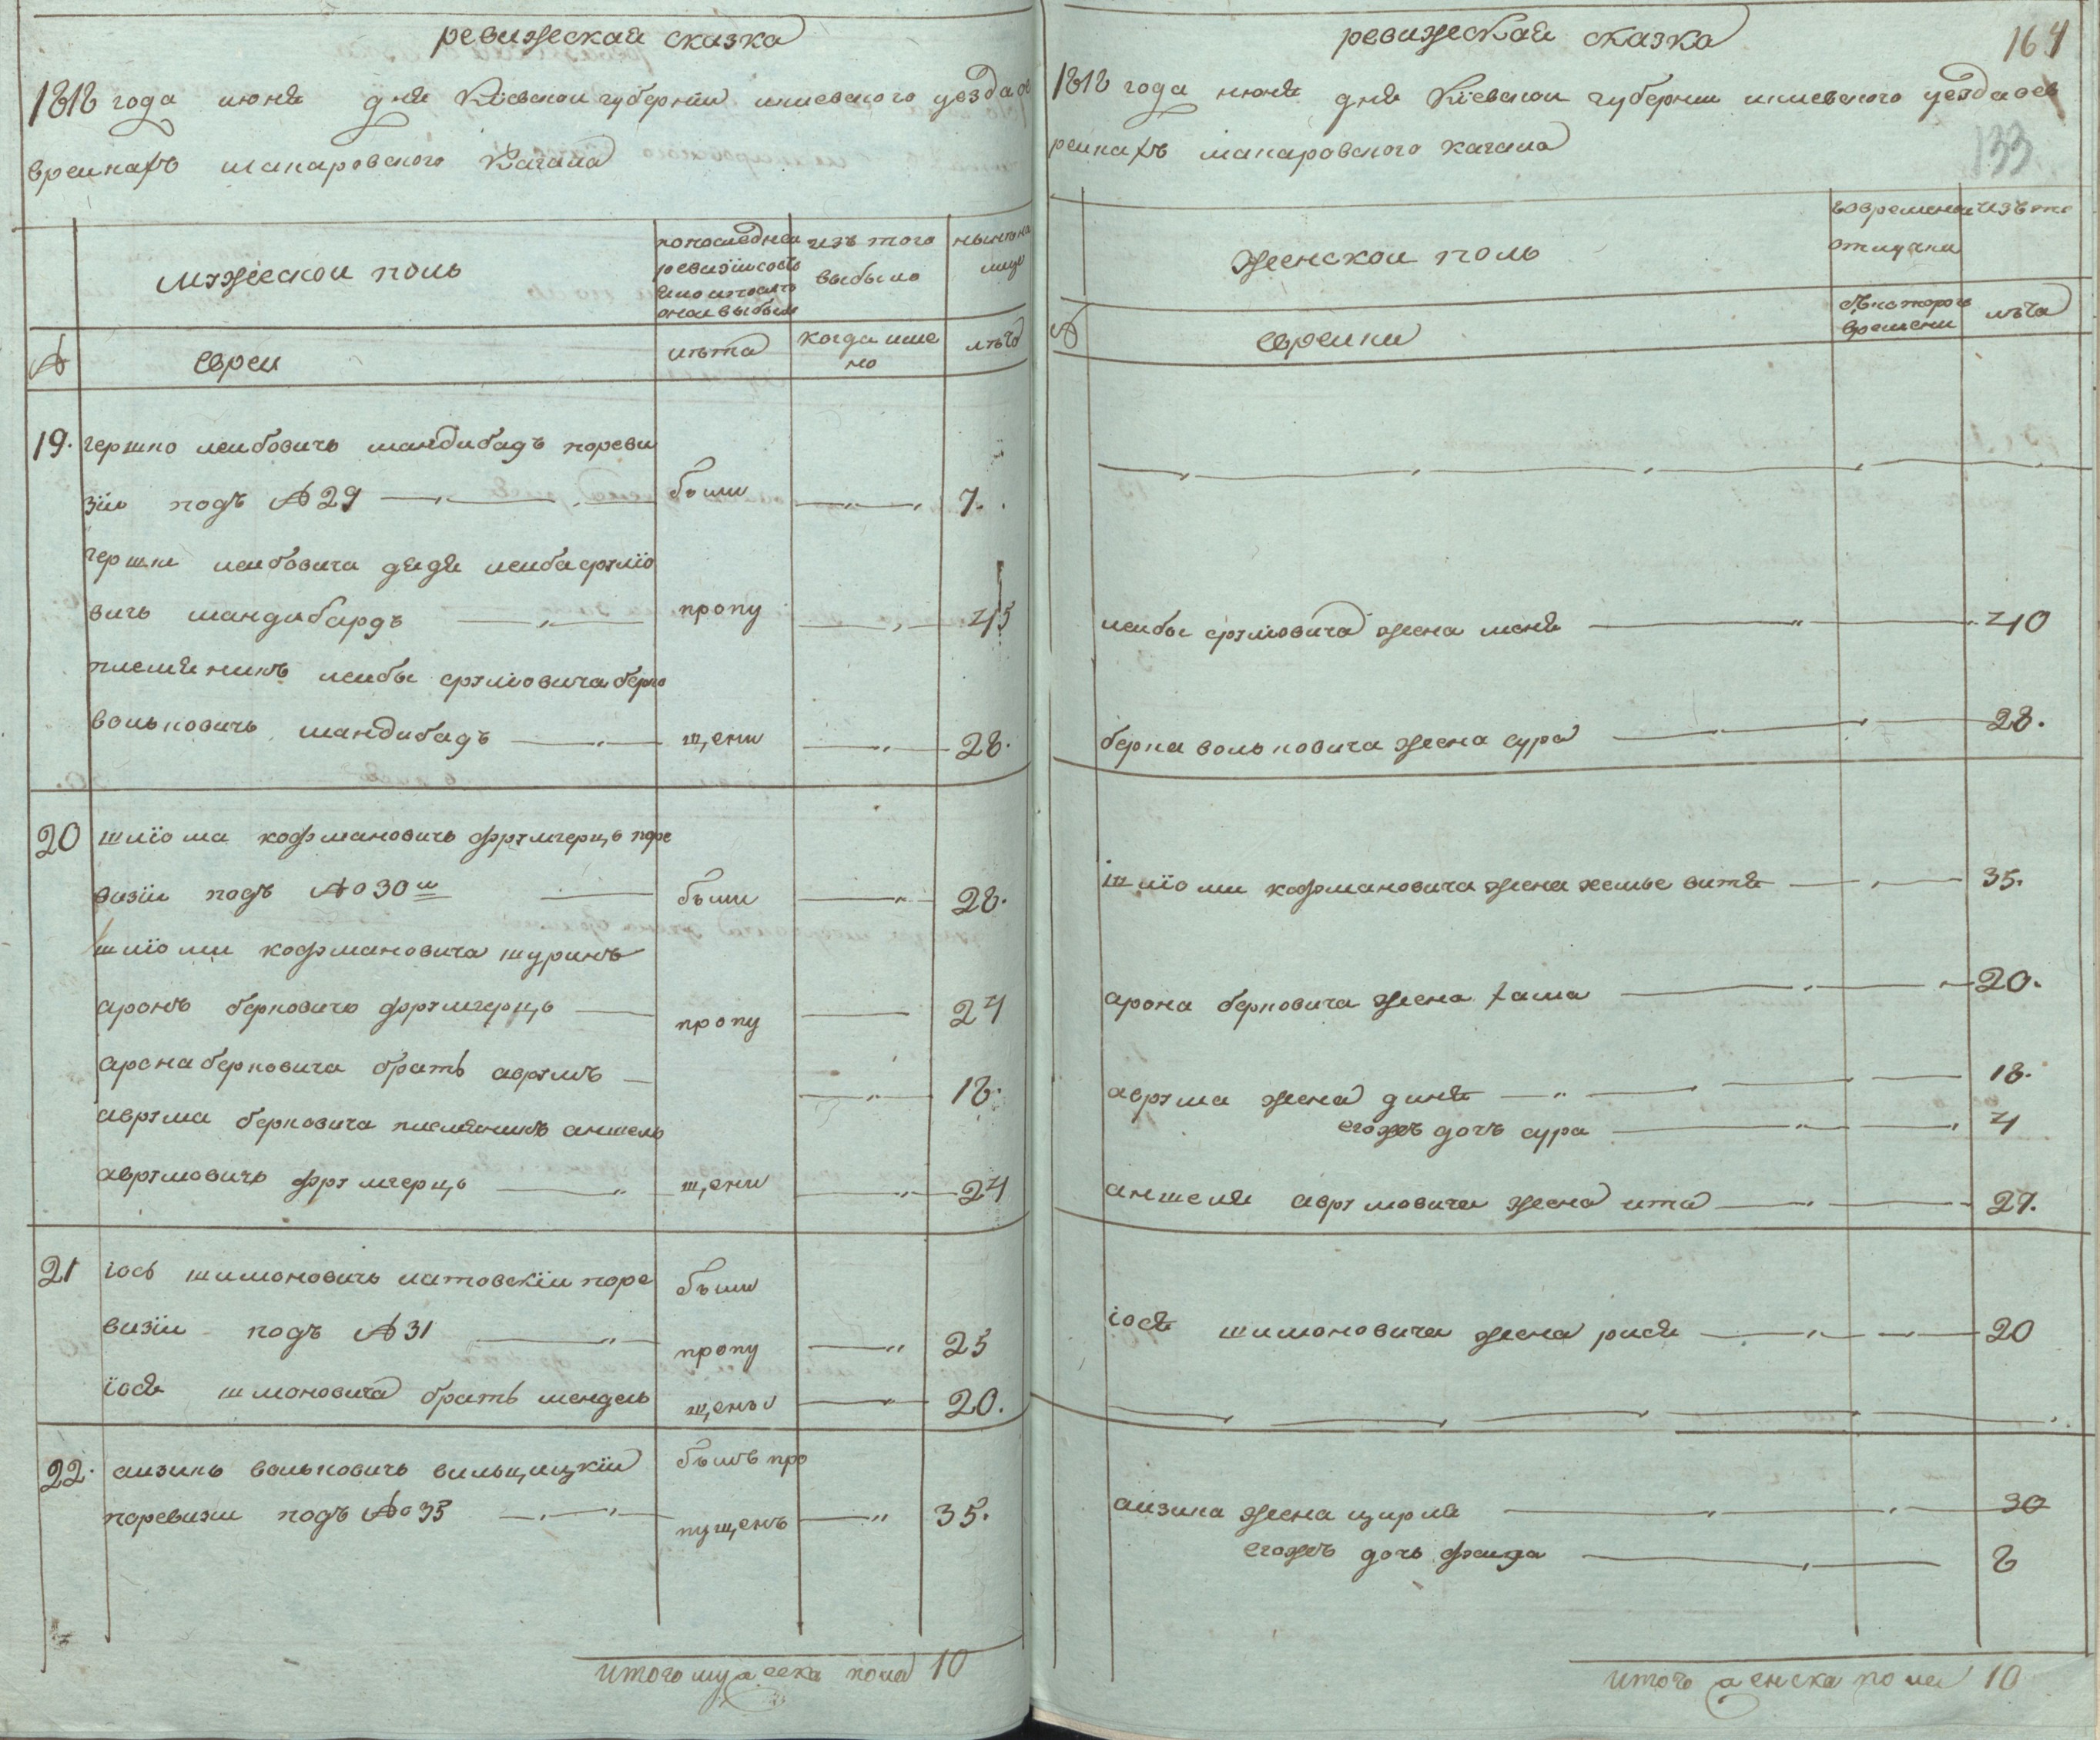 ревижеская сказка
1818 года июня дня Кіевскои губерніи икиевского уезда о
вреинахъ макаровского Кагала
мужескои полъ
попоследнеи ревизіи состояло ипосле онои выбыло
изъ того выбыло
нынѣ на лицо
№
евреи
лѣта
когда име
но
лѣта
19. гершко леибовичь мандибадъ пореви
зіи подъ № 29 были 7.
гершки леибовича дядя леиба срулiо
вичь мандибардъ пропу 45
племяникъ леибы срулiовича берко
вольковичь мандибадъ щени 28.
20 шліома кофмановичь фрумгерцъ поре
визіи подъ № 30м были 28.
шліоми кофмановича шуринъ
аронъ берковичь фрумгерцъ пропу 24
арона берковича братъ аврумъ 18.
аврума берковича племяникъ аншель
аврумовичь фрумгерцъ щени 24
21 іось шимоновичь литовскіи поре были
визіи подъ № 31 пропу 25
іося шмоновича братъ мендель щены 20.
22. аизикъ вольковичь вильщицкіи былъ про
поревизи подъ № 35 пущенъ 35.
итого мужеска пола 10
ревижеская сказка
164
1818 года июня дня Кіевскои губернии икиевского уезда оев
реинахъ макаровского кагала
133
женскои полъ
во временнои отлучки
изъ то
№
евреики
съ которого времени
лѣта
леибы срулiовича жена меня 40
берка вольковича жена сура 28.
шліоми кофмановича жена хемье витя 35.
арона берковича жена хаша 20.
аврума жена диня 18.
егожъ дочъ сура 4
аншеля аврумовича жена ита 27.
іося шимоновича жена рися 20
аизика жена цирля 30
егожъ дочь фэига 8
итогъ женска пола 10